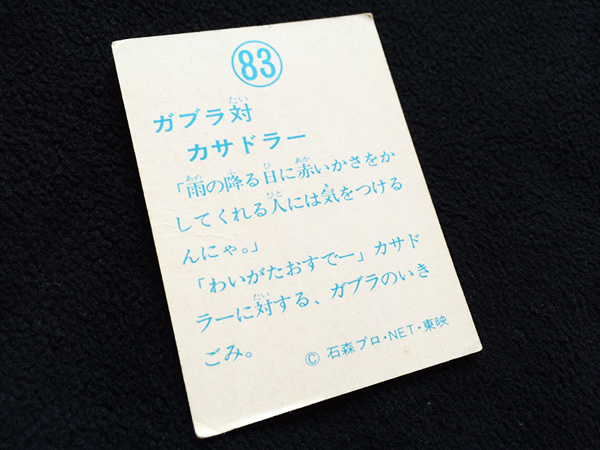 83
ガブラ対
カサドラー
「雨の降る日に赤いかさをか
してくれる人には気をつける
んにゃ。」
「わいがたおすでー」カサド
ラーに対する、ガブラのいき
ごみ。
© 石森プロ・NET・東映